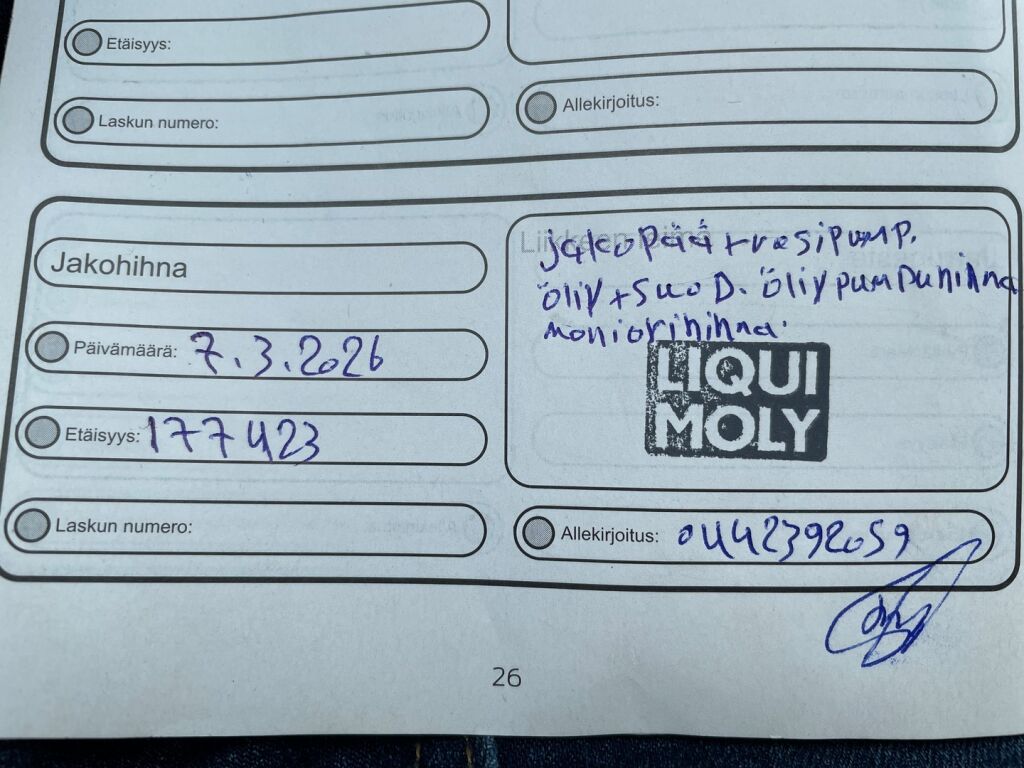 Etäisyys:
Laskun numero:
Allekirjoitus:
Jakohihna
Päivämäärä: 7.3.2026
Etäisyys: 177423
Laskun numero:
Liikkeen leima
jakopää+vesipump.
öliy+suoD. öliypumpunihna
moniorihihna.
LIQUI
MOLY
Allekirjoitus: 0442392059
26